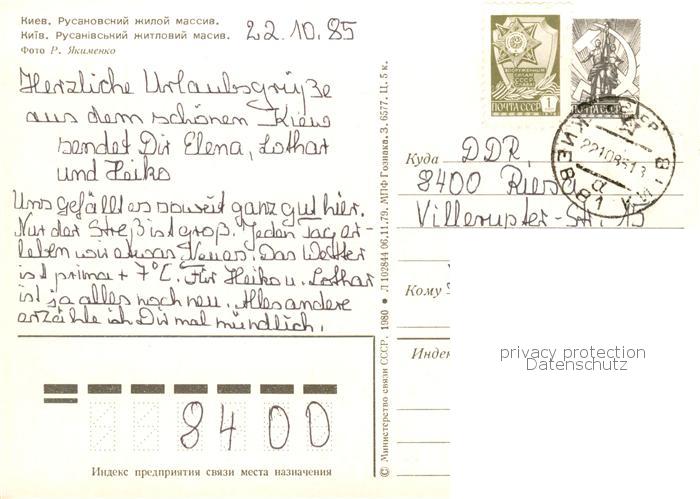 Киев. Русановский жилой массив.
Київ. Русанівський житловий масив.
Фото Р. Якименко
22.10.85
Herzliche Urlaubsgrüße
aus dem schönen Kiew
sendet Dir Elena, Lothar
und Heiko
Uns gefällt es soweit ganz gut hier.
Nur der Streß ist groß. Jeden Tag er-
leben wir etwas Neues. Das Wetter
ist prima + 7°C. Für Heiko u. Lothar
ist ja alles noch neu. Alles andere
erzähle ich Dir mal mündlich.
8400
Индекс предприятия связи места назначения
© Министерство связи СССР. 1980 ● Л 102844 06.11.79. МПФ Гознака. З. 6577. Ц. 5 к.
ВООРУЖЕННЫЕ СИЛЫ СССР
ПОЧТА СССР 1
ПОЧТА СССР
КИЕВ 81
Куда DDR,
8400 Riesa
Villerupter-Str. 15
Кому
Индек
privacy protection
Datenschutz